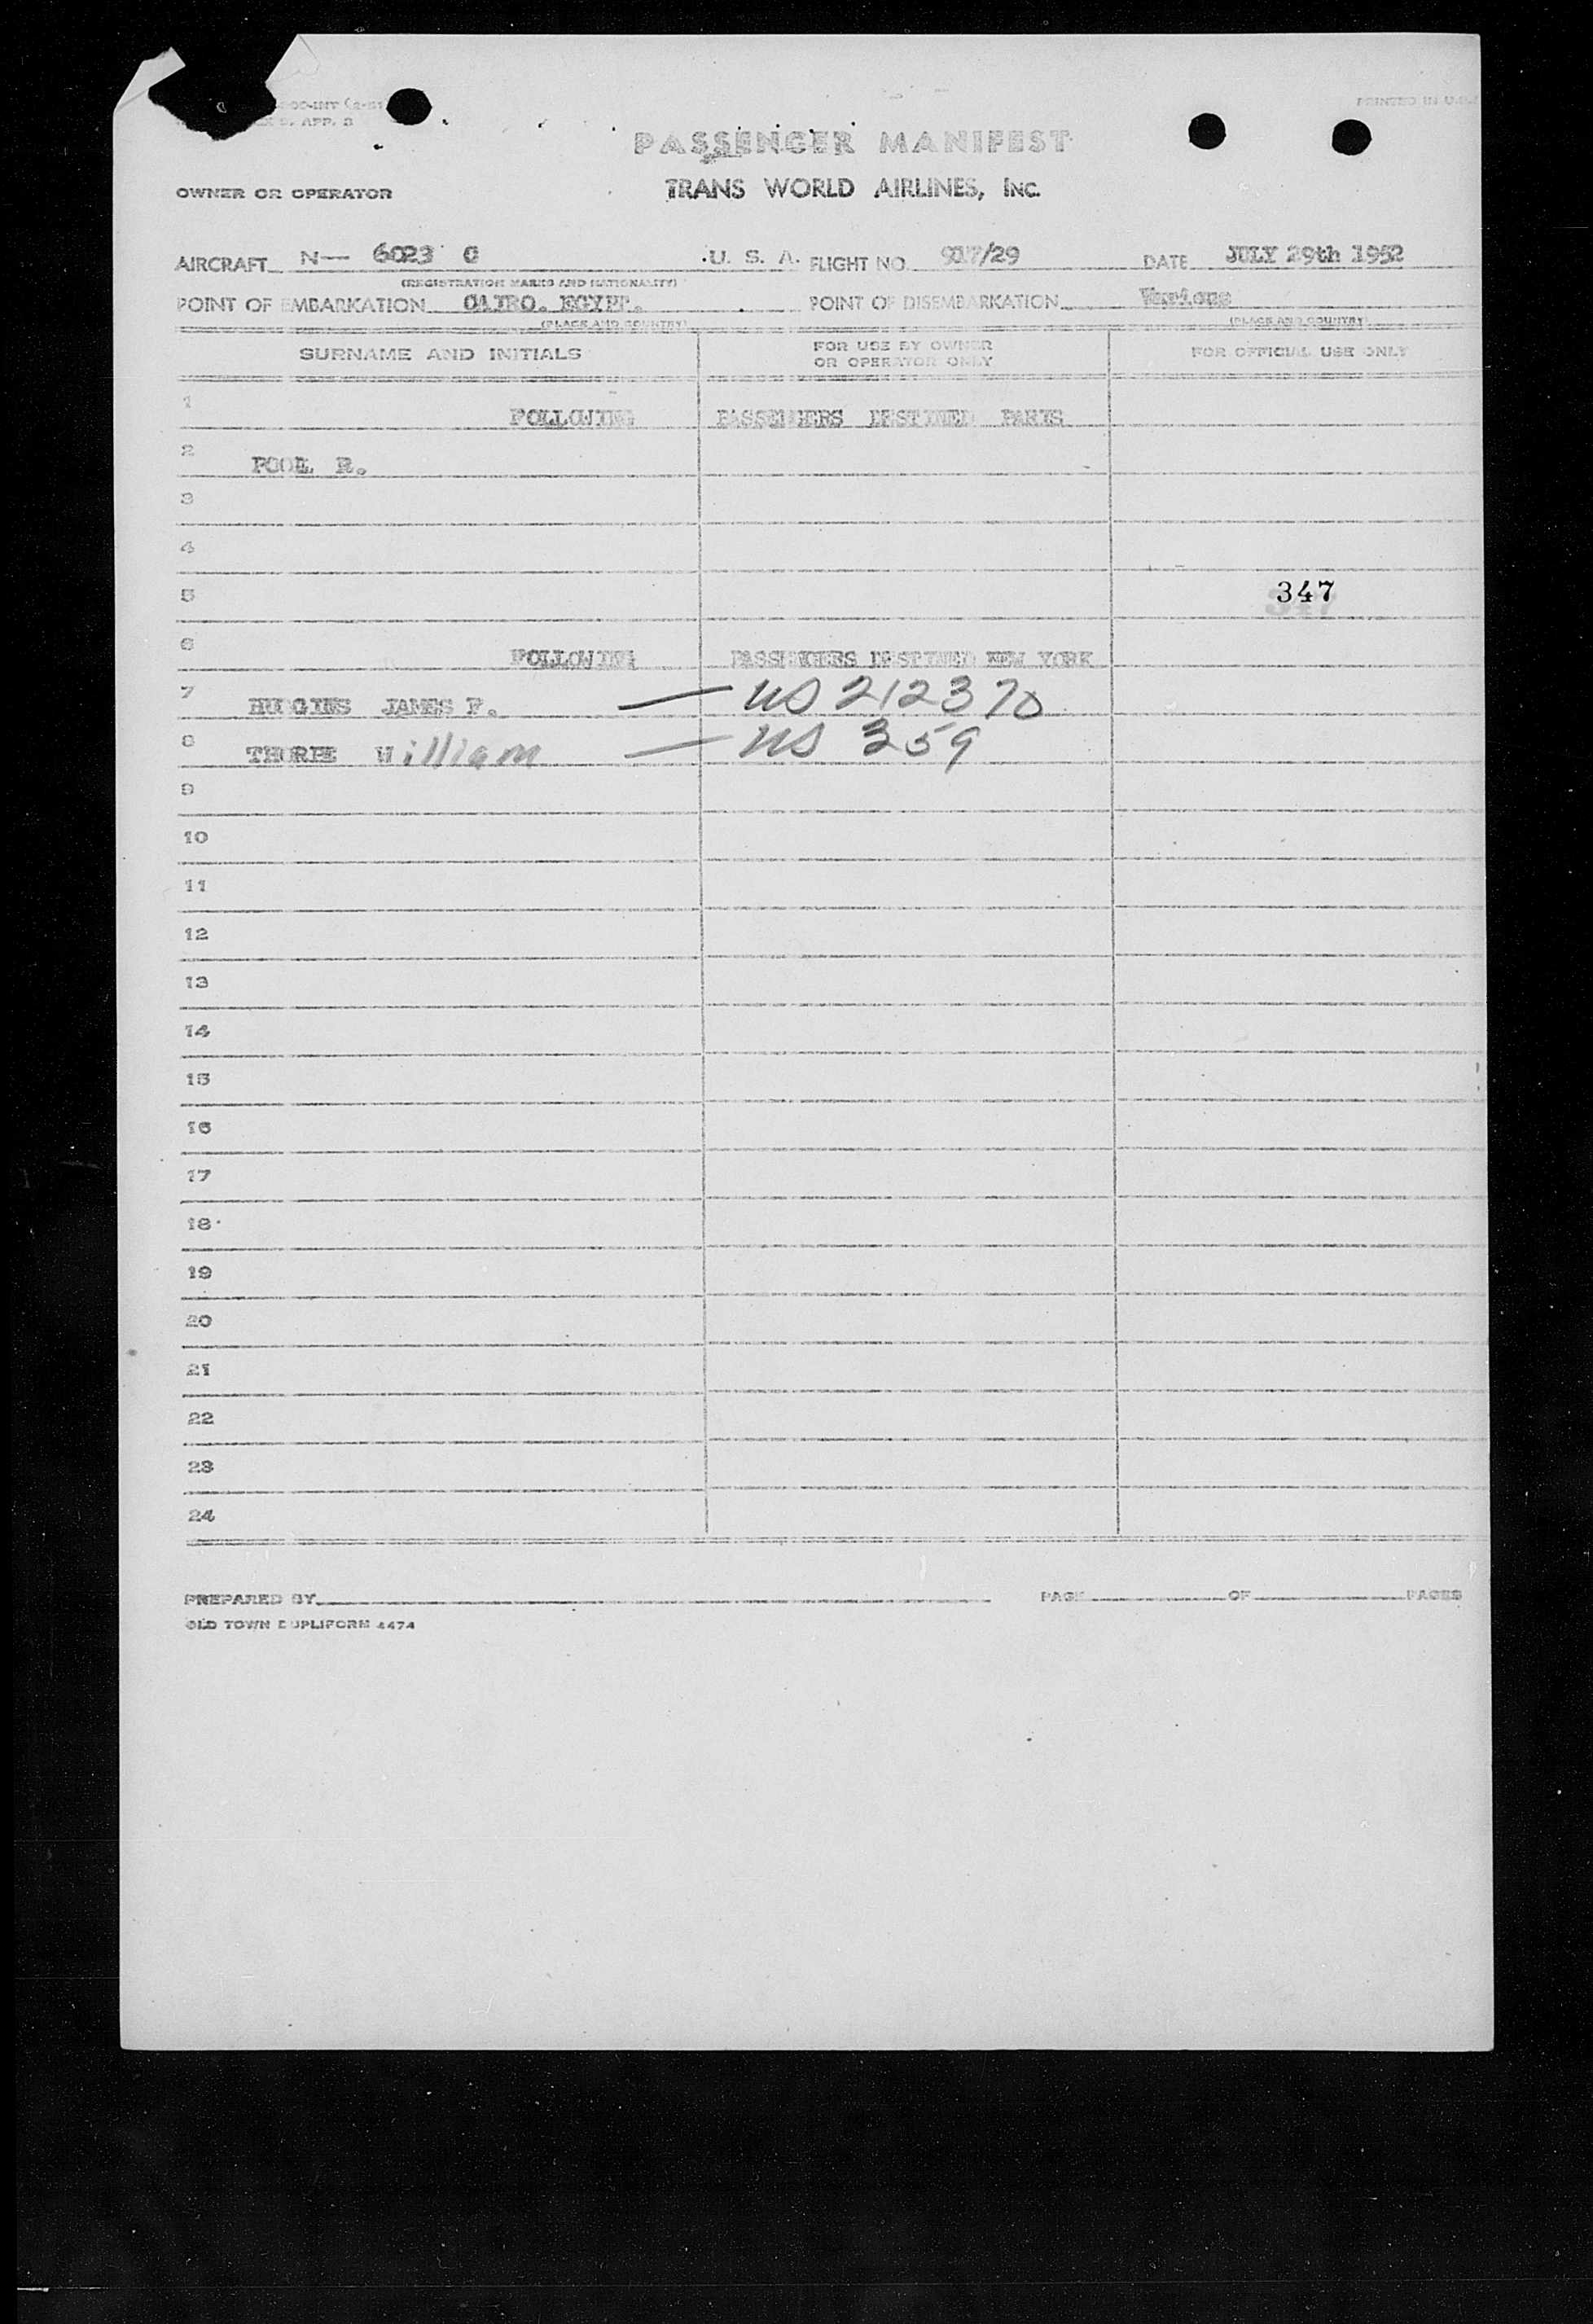 PRINTED IN U.S.
APP. 3
PASSENGER MANIFEST
OWNER OR OPERATOR TRANS WORLD AIRLINES, INC.
AIRCRAFT N— 6023 C U. S. A. FLIGHT NO. 917/29 DATE JULY 29th 1952
(REGISTRATION MARKS AND NATIONALITY)
POINT OF EMBARKATION CAIRO. EGYPT. POINT OF DISEMBARKATION Various
(PLACE AND COUNTRY) (PLACE AND COUNTRY)
SURNAME AND INITIALS FOR USE BY OWNER OR OPERATOR ONLY FOR OFFICIAL USE ONLY
1 FOLLOWING PASSENGERS DESTINED PARIS
2 POOL R.
3
4
5 347
6 FOLLOWING PASSENGERS DESTINED NEW YORK
7 HUGINS JAMES F. — US 212370
8 THORPE William — US 359
9
10
11
12
13
14
15
16
17
18
19
20
21
22
23
24
PREPARED BY PAGE OF PAGES
OLD TOWN DUPLIFORM 4474